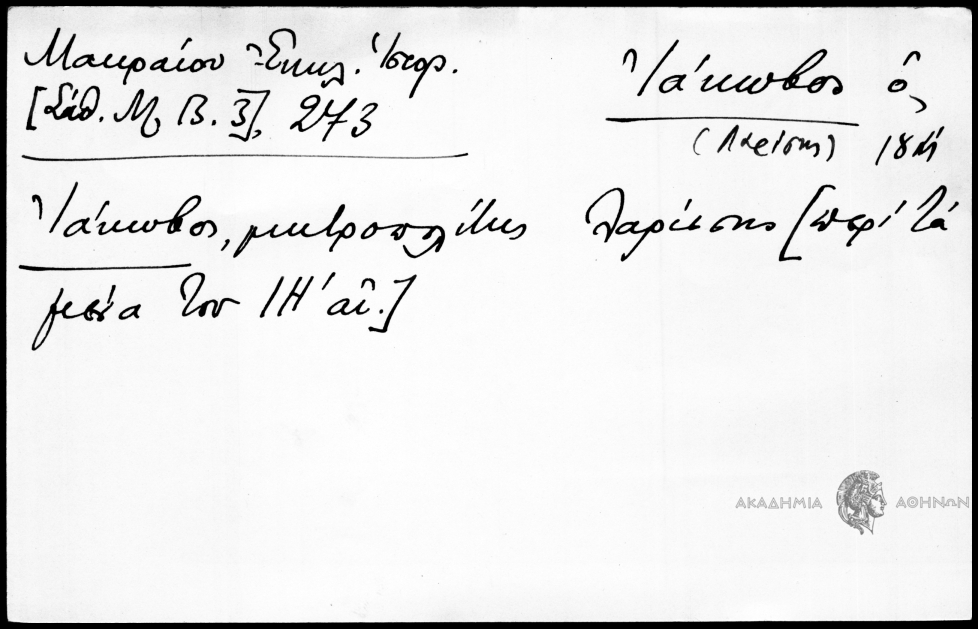 Μακραίου Ἐκκλ. Ἱστορ.
[Σάθ. Μ. Β. Γ], 273
Ἰάκωβος ὁ
(Λαρίσης) 18 ἀι
Ἰάκωβος, μητροπολίτης Λαρίσσης [περὶ τὰ
μέσα τοῦ ΙΗ΄ αἰ.]
ΑΚΑΔΗΜΙΑ ΑΘΗΝΩΝ